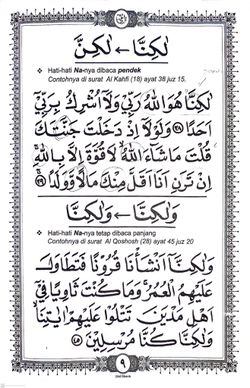 لٰكِنَّا ← لٰكِنَّ
❖ Hati-hati Na-nya dibaca pendek
Contohnya di surat Al Kahfi (18) ayat 38 juz 15.
لٰكِنَّا۠ هُوَ اللّٰهُ رَبِّيْ وَلَآ اُشْرِكُ بِرَبِّيْٓ
اَحَدًا ٣٨ وَلَوْلَآ اِذْ دَخَلْتَ جَنَّتَكَ
قُلْتَ مَا شَآءَ اللّٰهُ لَا قُوَّةَ اِلَّا بِاللّٰهِ
اِنْ تَرَنِ اَنَا۠ اَقَلَّ مِنْكَ مَالًا وَّوَلَدًا ٣٩
وَلٰكِنَّا ← وَلٰكِنَّا
❖ Hati-hati Na-nya tetap dibaca panjang
Contohnya di surat Al Qoshosh (28) ayat 45 juz 20
وَلٰكِنَّآ اَنْشَأْنَا قُرُوْنًا فَتَطَاوَلَ
عَلَيْهِمُ الْعُمُرُ وَمَا كُنْتَ ثَاوِيًا فِيْٓ
اَهْلِ مَدْيَنَ تَتْلُوْا عَلَيْهِمْ اٰيٰتِنَا
وَلٰكِنَّا كُنَّا مُرْسِلِيْنَ ٤٥
٩